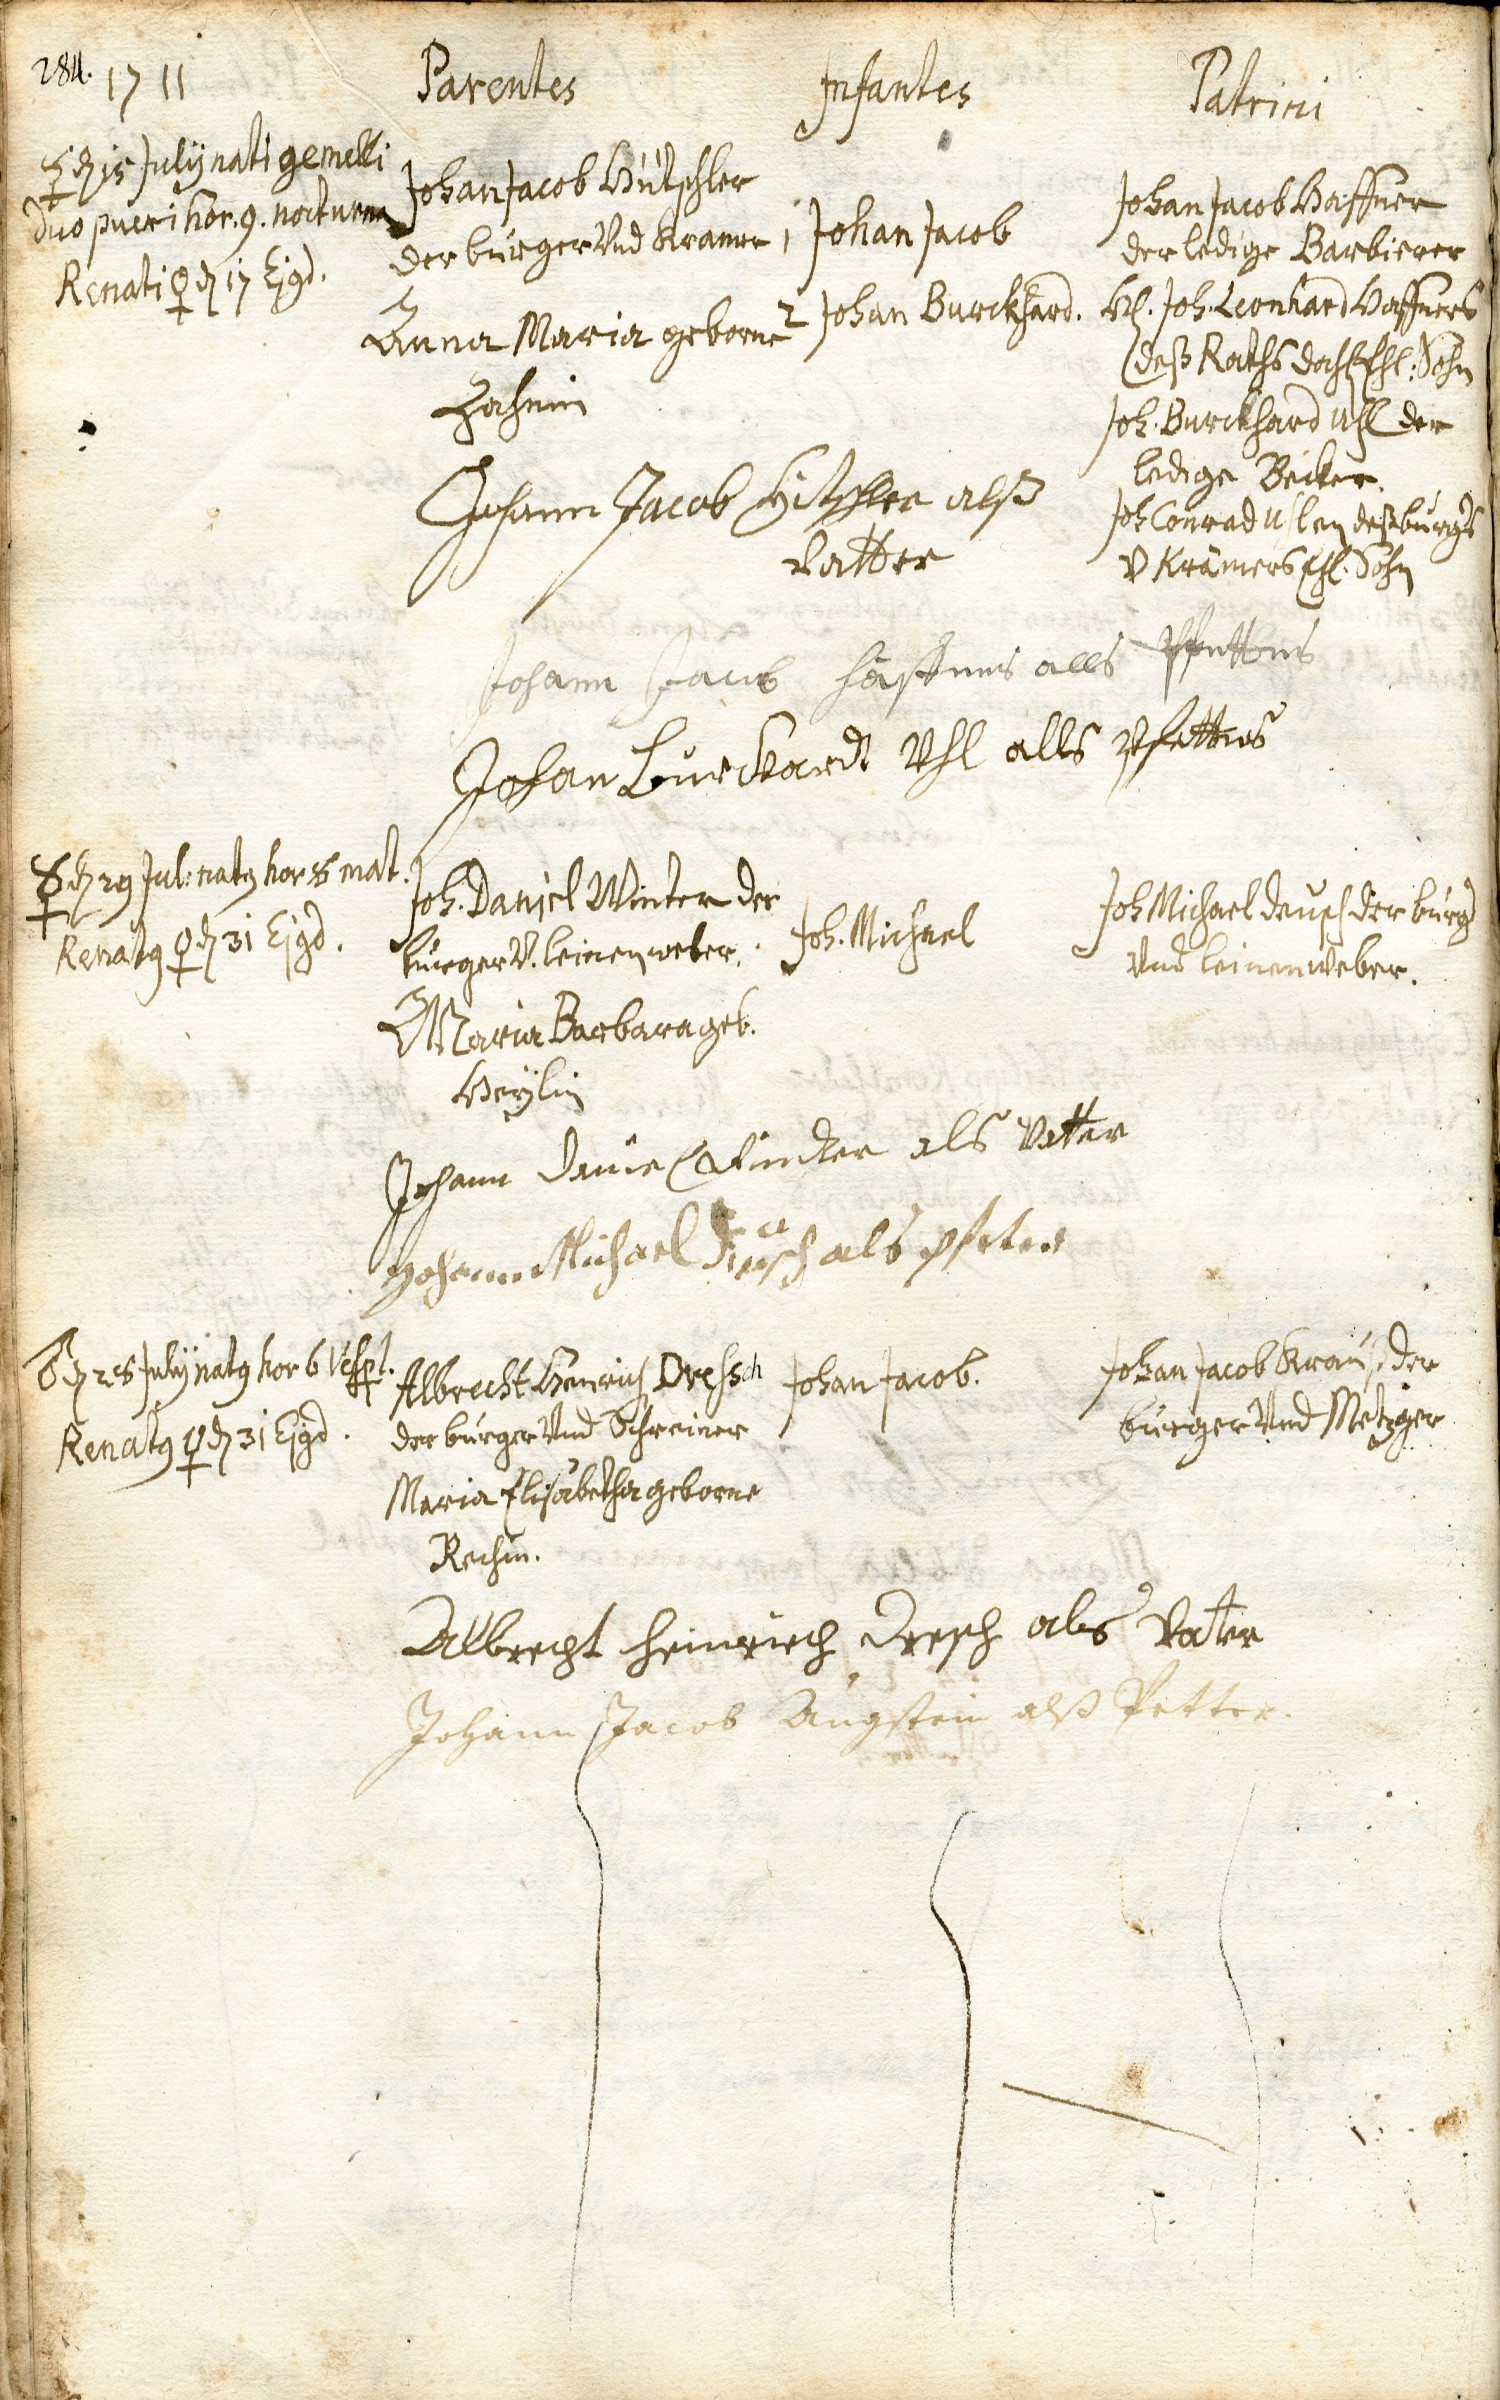 284. 1711
Parentes
Infantes
Patrini
☿ d 15 Julij nati gemelli
duo pueri hor. 9. nocturna
Renati ♀ d 17 Ejgd.
Johan Jacob Hütschler
der burger Vnd Kramer
Anna Maria geborne
Zahnin
1 Johan Jacob
2 Johan Burckhard.
Johan Jacob Haffner
der ledige Barbierer
H. Joh. Leonhard Haffners
deß Raths Ehl: Sohn
Joh. Burckhard Uhl der
ledige Becker.
Joh Conrad Uhlen deß burgrs
V Krämers Ehl. Sohn
Johann Jacob Hitschler alß
Vatter
Johann Jacob alls Pfetters
Johan Burckardt Vhl alls Pfetters
☿ d 29 Jul: natg hor 8 mat.
Renatg ♀ d 31 Ejgd.
Joh. Daniel Winter der
burger V. leinenweber.
Maria Barbara geb.
Heylin
Joh. Michael
Joh Michael Deusch der burgr
Vnd leinenweber.
Johann Daniel Winder als Vatter
Johann Michael Deusch als Pfeter
♂ d 28 Julij natg hor 6 Vespt.
Renatg ♀ d 31 Ejgd.
Albrecht Henrich Dressch
der burger Vnd Schreiner
Maria Elisabetha geborne
Rechin.
Johan Jacob.
Johan Jacob Krauß der
burger Vnd Metzger
Albrecht Heinrich Dresch als Vater
Johann Jacob Augstein alß Petter.